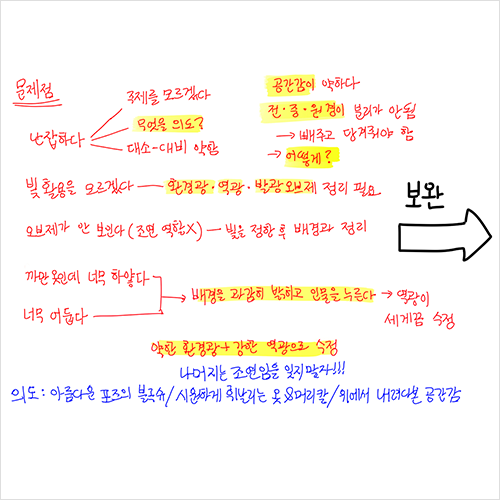 문제점
난잡하다
주제를 모르겠다
무엇을 의도?
대소-대비 약함
공간감이 약하다
전·중·원경이 분리가 안됨
→ 빼주고 당겨줘야 함
→ 어떻게?
빛 활용을 모르겠다 — 환경광·역광·발광오브제 정리 필요
오브제가 안 보인다 (조연 역할X) — 빛을 정한 후 배경과 정리
보완
까만 옷인데 너무 하얗다
너무 어둡다
→ 배경을 과감히 밝히고 인물을 누른다 → 역광이 세게끔 수정
약한 환경광 + 강한 역광으로 수정
나머지는 조연임을 잊지말자!!!
의도: 아름다운 포즈의 불주술/시원하게 휘날리는 옷&머리칼/위에서 내려다본 공간감